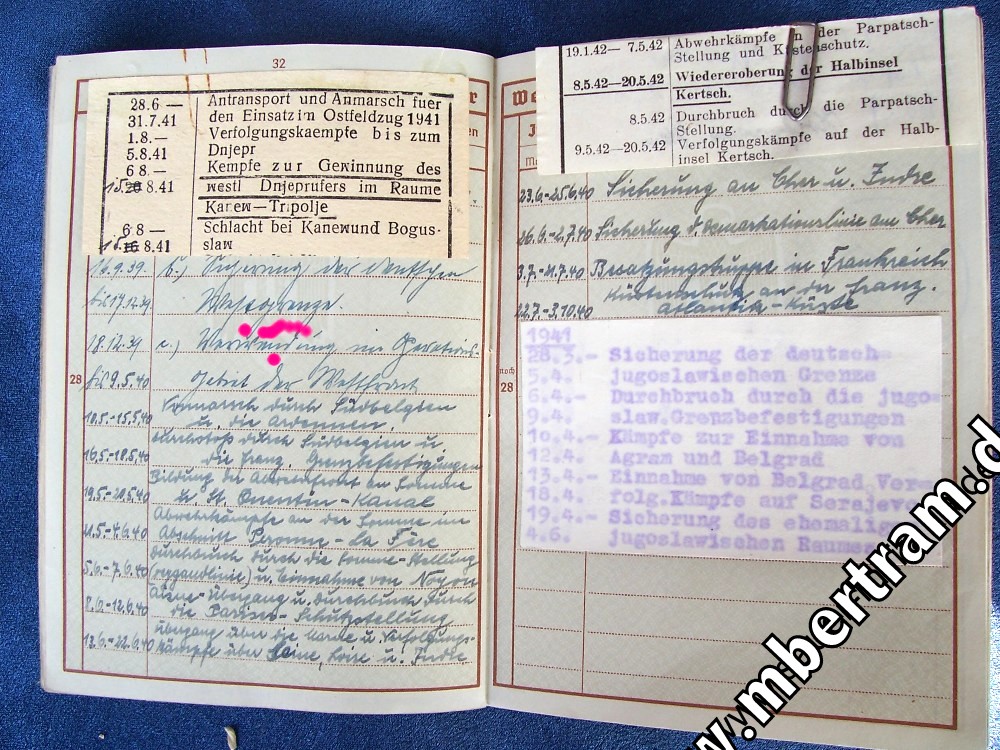 32
28.6 —
Antransport und Anmarsch fuer
31.7.41
den Einsatz im Ostfeldzug 1941
1.8.—
Verfolgungskaempfe bis zum
5.8.41
Dnjepr
6 8.—
Kempfe zur Gewinnung des
8.41
westl Dnjeprufers im Raume
Kanew—Tripolje
6 8 —
Schlacht bei Kanewund Bogus-
8.41
slaw
16.9.39. b.) Sicherung der deutschen
bis 17.12.39 Westgrenze.
18.12.39 c.) Verwendung im Operations-
28
bis 9.5.40 gebiet der Westfront
10.5.-15.5.40 Vormarsch durch Südbelgien
u. die Ardennen.
16.5.-18.5.40 Durchstoß durch Südbelgien u.
die franz. Grenzbefestigungen
19.5.-20.5.40 Bildung der Abwehrfront an Somme
u. St. Quentin-Kanal
21.5.-4.6.40 Abwehrkämpfe an der Somme im
Abschnitt Peronne - La Fère
5.6.-7.6.40 Durchbruch durch die Somme-Stellung
(Weygandlinie) u. Einnahme von Noyon
8.6.-12.6.40 Aisne-Übergang u. Durchbruch durch
die Pariser-Schutzstellung
13.6.-22.6.40 Übergang über die Marne u. Verfolgungs-
kämpfe über Seine, Loire u. Indre
19.1.42— 7.5.42
Abwehrkämpfe in der Parpatsch-
Stellung und Küstenschutz.
8.5.42—20.5.42
Wiedereroberung der Halbinsel
Kertsch.
8.5.42
Durchbruch durch die Parpatsch-
Stellung.
9.5.42—20.5.42
Verfolgungskämpfe auf der Halb-
insel Kertsch.
23.6.-25.6.40 Sicherung an Cher u. Indre
26.6.-2.7.40 Sicherung d. Demarkationslinie am Cher
3.7.-21.7.40 Besatzungstruppe in Frankreich
22.7.-3.10.40 Küstenschutz an der franz.
Atlantik-Küste
1941
28.3.- Sicherung der deutsch-
5.4. jugoslawischen Grenze
6.4.- Durchbruch durch die jugo-
9.4. slaw.Grenzbefestigungen
noch
28
10.4.- Kämpfe zur Einnahme von
12.4. Agram und Belgrad
13.4.- Einnahme von Belgrad Ver-
18.4. folg.Kämpfe auf Serajew
19.4.- Sicherung des ehemalig
4.6. jugoslawischen Raumes
www.mbertram.d